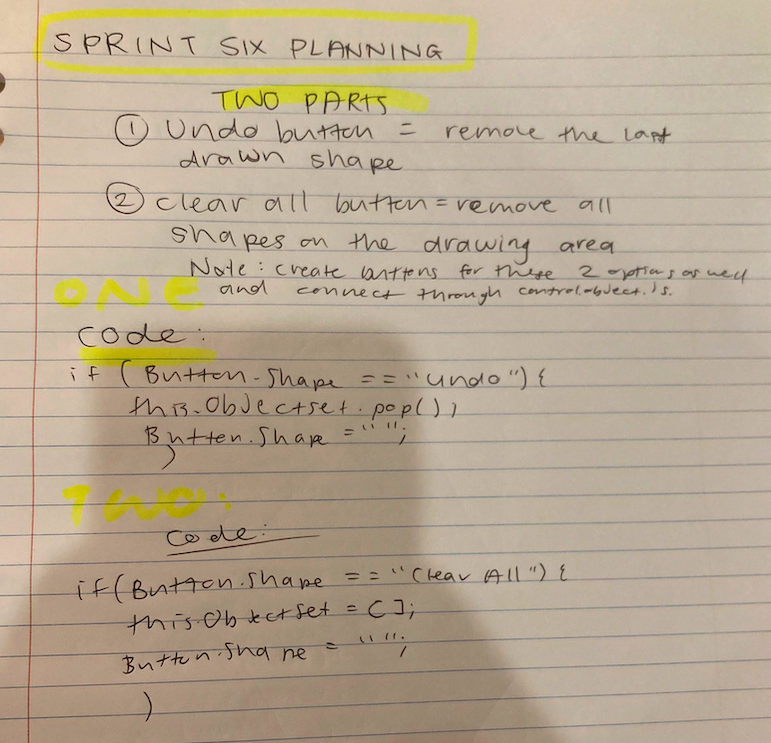 SPRINT SIX PLANNING
TWO PARTS
① Undo button = remove the last
drawn shape
② clear all button = remove all
shapes on the drawing area
Note: create buttons for these 2 options as well
and connect through control.object.js.
ONE
code:
if (Button.Shape == "undo") {
this.Objectset.pop();
Button.Shape = "";
}
TWO:
code:
if(Button.Shape == "Clear All") {
this.Objectset = [];
Button.Shape = "";
}